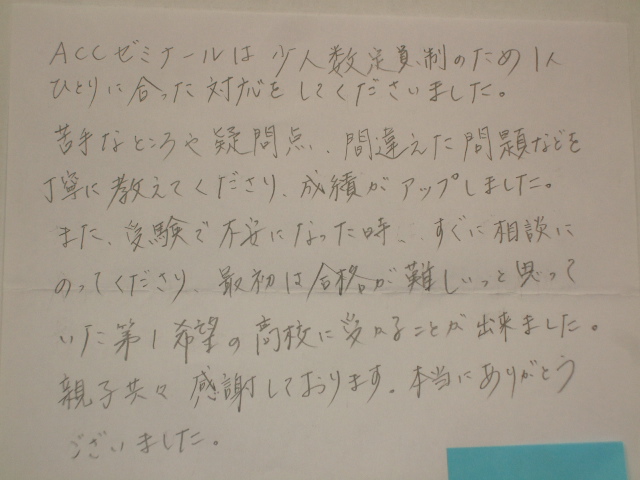 ACCゼミナールは少人数定員制のため1人
ひとりに合った対応をしてくださいました。
苦手なところや疑問点、間違えた問題などを
丁寧に教えてくださり、成績がアップしました。
また、受験で不安になった時、すぐに相談に
のってくださり、最初は合格が難しいと思って
いた第1希望の高校に受かることが出来ました。
親子共々感謝しております。本当にありがとう
ございました。